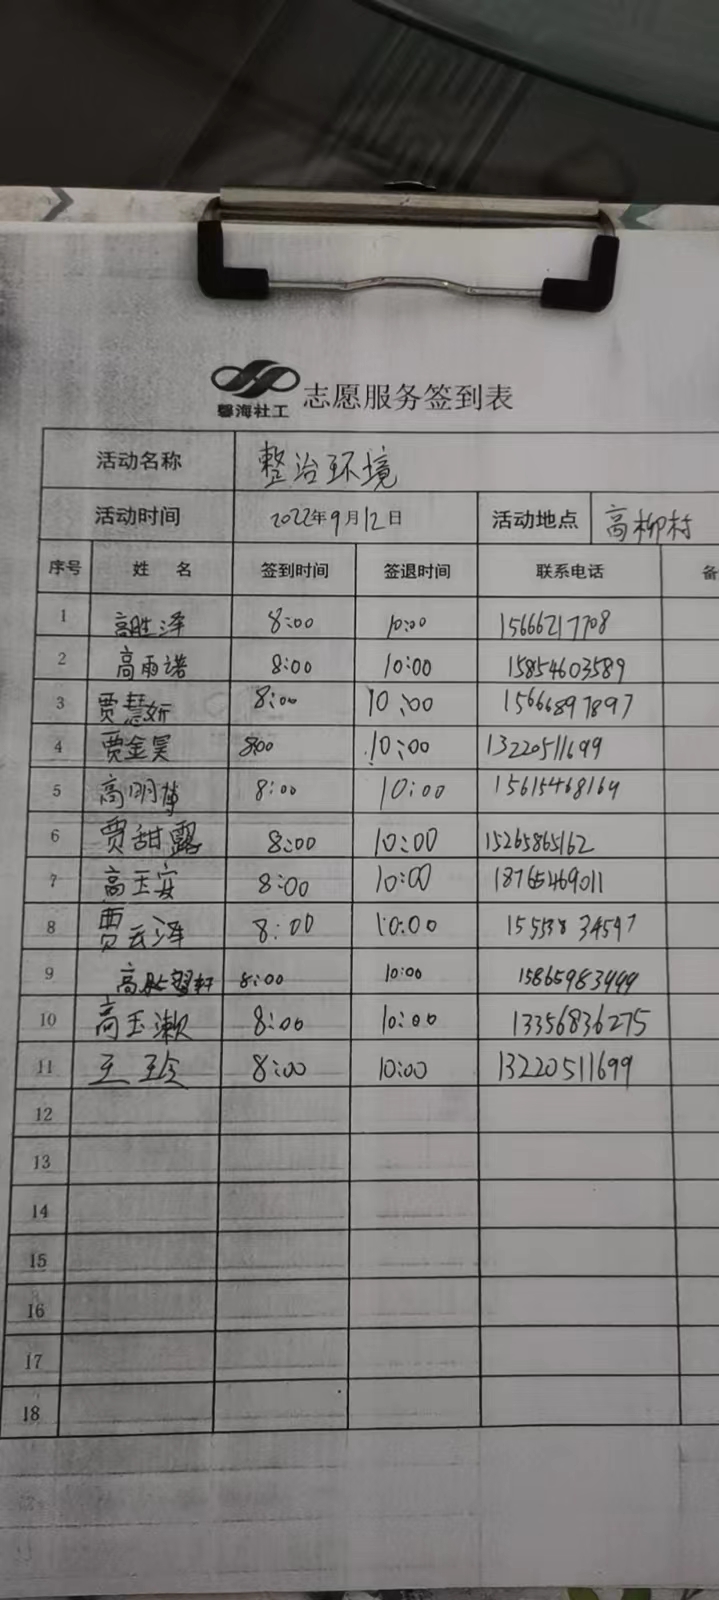 馨海社工 志愿服务签到表
活动名称 整治环境
活动时间 2022年9月12日 活动地点 高柳村
序号 姓 名 签到时间 签退时间 联系电话 备
1 高胜泽 8:00 10:00 15666217708
2 高雨诺 8:00 10:00 15854603589
3 贾慧妍 8:00 10:00 15666897897
4 贾金昊 8:00 10:00 13220511699
5 高明博 8:00 10:00 15615468164
6 贾甜露 8:00 10:00 15265865162
7 高玉安 8:00 10:00 18765469011
8 贾云泽 8:00 10:00 15553834597
9 8:00 10:00 15865983999
10 高玉漱 8:00 10:00 13356836275
11 王珍 8:00 10:00 13220511699
12
13
14
15
16
17
18